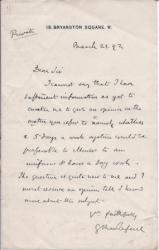 18, BRYANSTON SQUARE. W.
Private
March 21. 92
Dear Sir
I cannot say that I have
sufficient information as yet to
enable me to give an opinion on the
matter you refer to namely whether
a 5 days a week system would be
preferable to
uniform 8 hours a day week.
The question is quite new to me and I
must reserve an opinion till I know
more about the subject.
Yrs faithfully